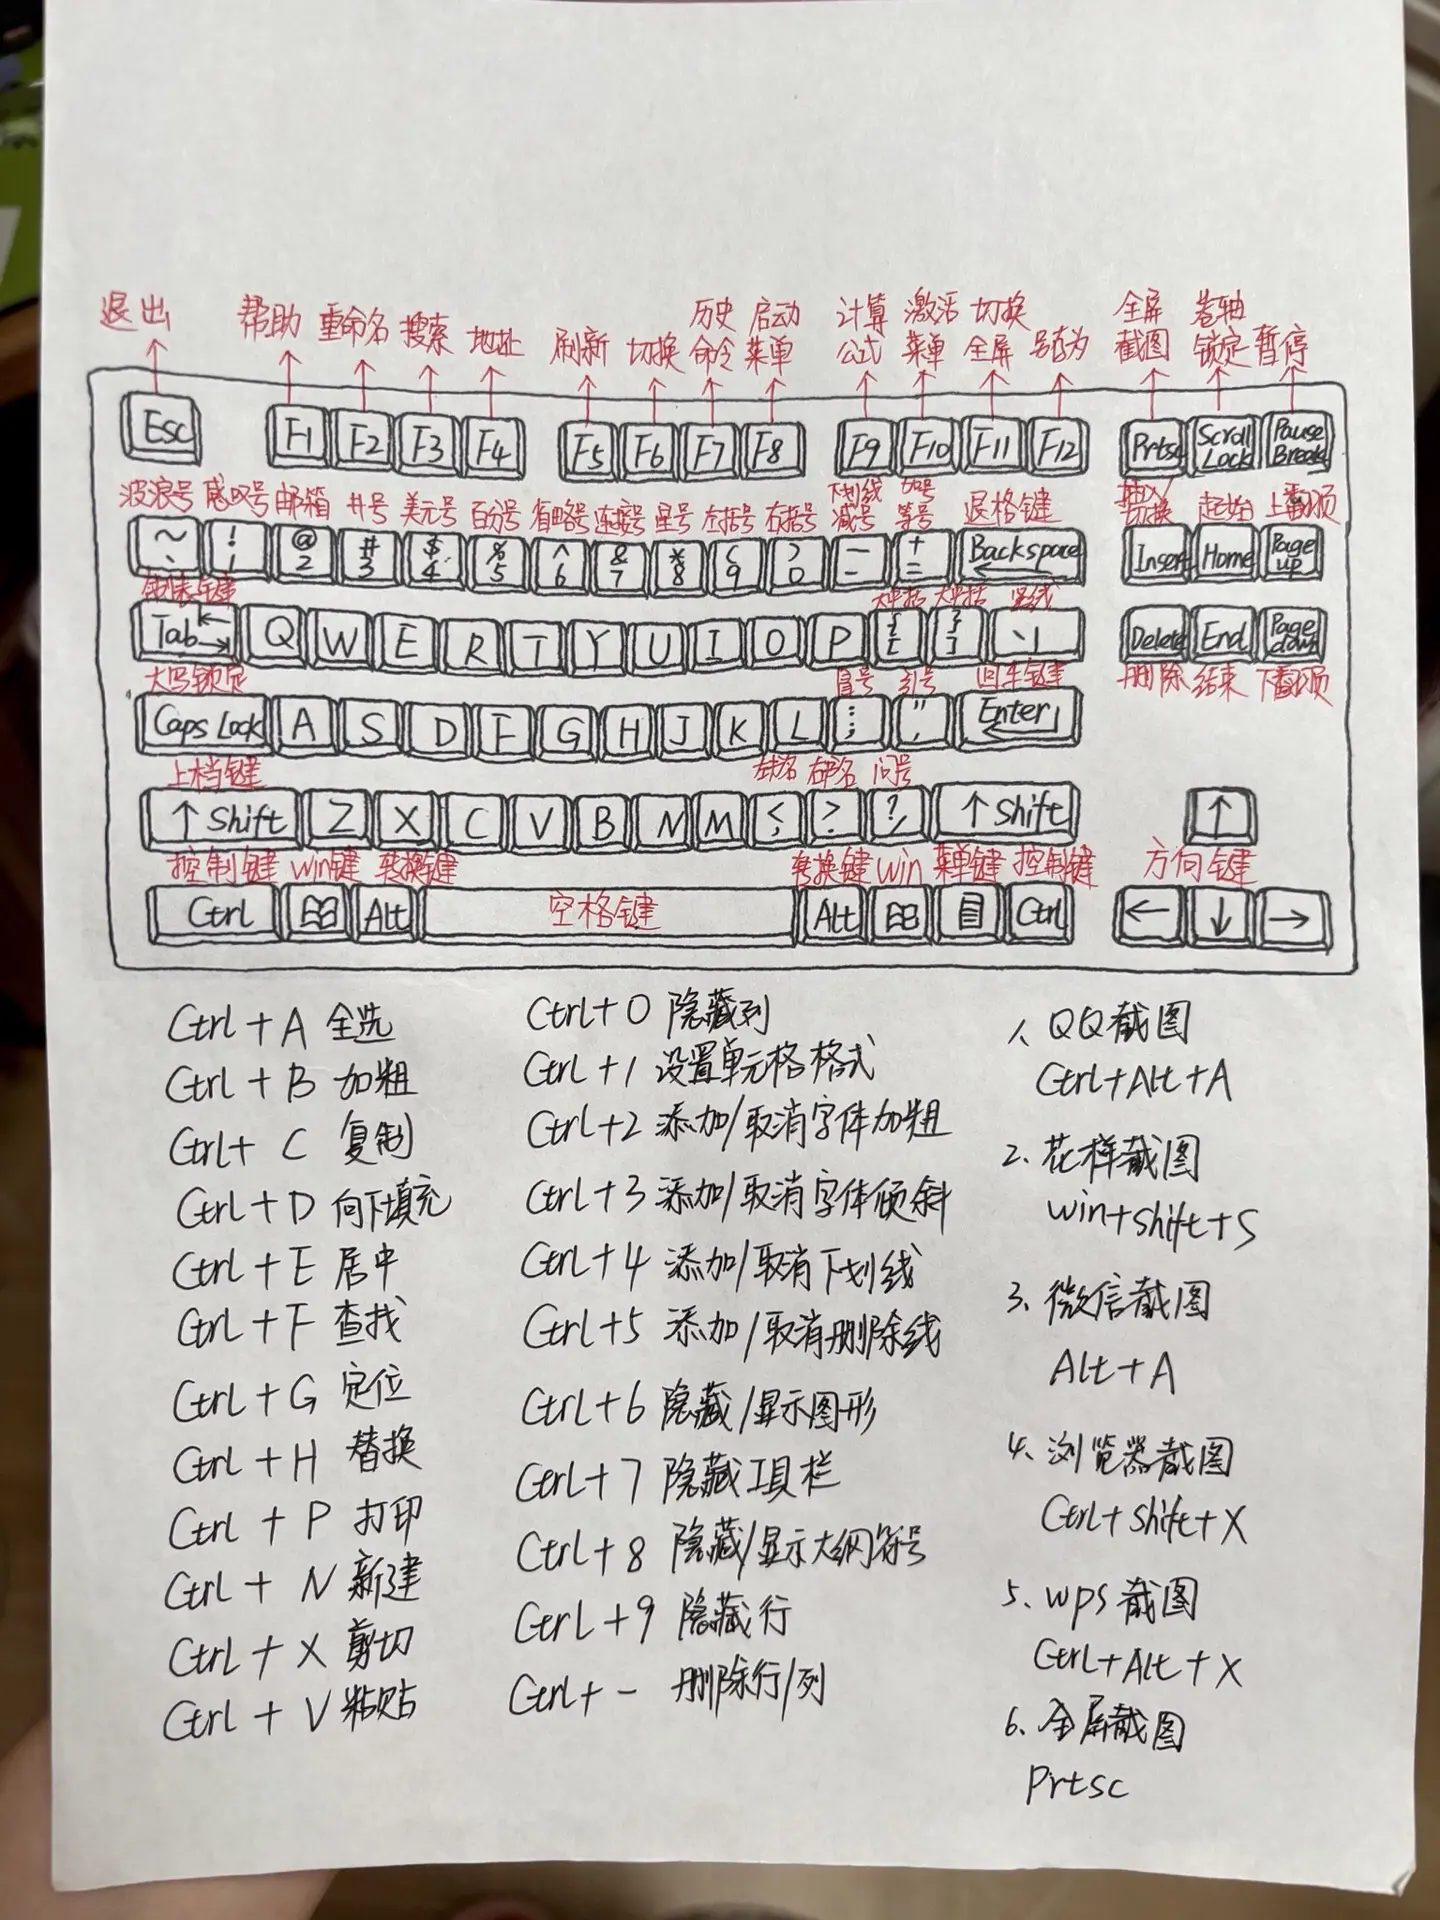 退出 帮助 重命名 搜索 地址 刷新 切换 历史命令 启动菜单 计算公式 激活菜单 切换全屏 另存为 全屏截图 卷轴锁定 暂停
Esc F1 F2 F3 F4 F5 F6 F7 F8 F9 F10 F11 F12 Prtsc Scroll Lock Pause Break
波浪号 感叹号 邮箱 井号 美元号 百分号 省略号 连接号 星号 左括号 右括号 下划线 减号 加号 等号 退格键 插入/切换 起始 上翻页
~ ` ! 1 @ 2 # 3 $ 4 % 5 ^ 6 & 7 * 8 ( 9 ) 0 — - + = Backspace ← Insert Home Page up
制表键 大中括 大中括 竖线
Tab Q W E R T Y U I O P { [ } ] \ | Delete End Page down
大写锁定 冒号 引号 回车键 删除 结束 下翻页
Caps Lock A S D F G H J K L : ; " ' Enter
上档键 左书名 右书名 问号
↑ Shift Z X C V B N M < , > . ? / ↑ Shift ↑
控制键 Win键 转换键 转换键 Win 菜单键 控制键 方向键
Ctrl Alt 空格键 Alt Ctrl ← ↓ →
Ctrl + A 全选
Ctrl + B 加粗
Ctrl + C 复制
Ctrl + D 向下填充
Ctrl + E 居中
Ctrl + F 查找
Ctrl + G 定位
Ctrl + H 替换
Ctrl + P 打印
Ctrl + N 新建
Ctrl + X 剪切
Ctrl + V 粘贴
Ctrl+0 隐藏列
Ctrl+1 设置单元格格式
Ctrl+2 添加/取消字体加粗
Ctrl+3 添加/取消字体倾斜
Ctrl+4 添加/取消下划线
Ctrl+5 添加/取消删除线
Ctrl+6 隐藏/显示图形
Ctrl+7 隐藏工具栏
Ctrl+8 隐藏/显示大纲符号
Ctrl+9 隐藏行
Ctrl+- 删除行/列
1、QQ截图
Ctrl+Alt+A
2、花样截图
win+shift+S
3、微信截图
Alt+A
4、浏览器截图
Ctrl+shift+X
5、wps截图
Ctrl+Alt+X
6、全屏截图
Prtsc